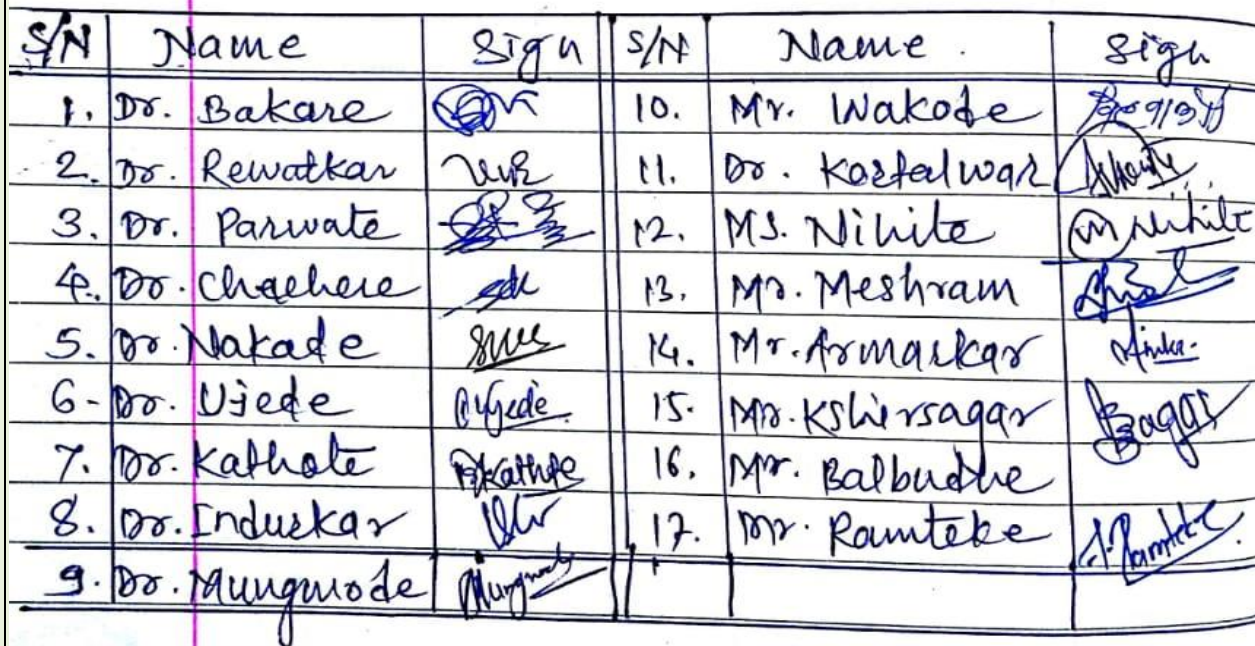 S/N Name Sign S/N Name. Sign
1. Dr. Bakare 10. Mr. Wakode
2. Dr. Rewatkar 11. Dr. Kostalwar
3. Dr. Parwate 12. MS. Nihite Nihite
4. Dr. Chachere 13. Mr. Meshram
5. Dr. Nakade 14. Mr. Armarkar
6- Dr. Ujede Ujede 15. Mr. Kshirsagar
7. Dr. Kathote Kathote 16. Mr. Balbudhe
8. Dr. Indurkar 17. Mr. Ramteke Ramteke
9. Dr. Mungmode